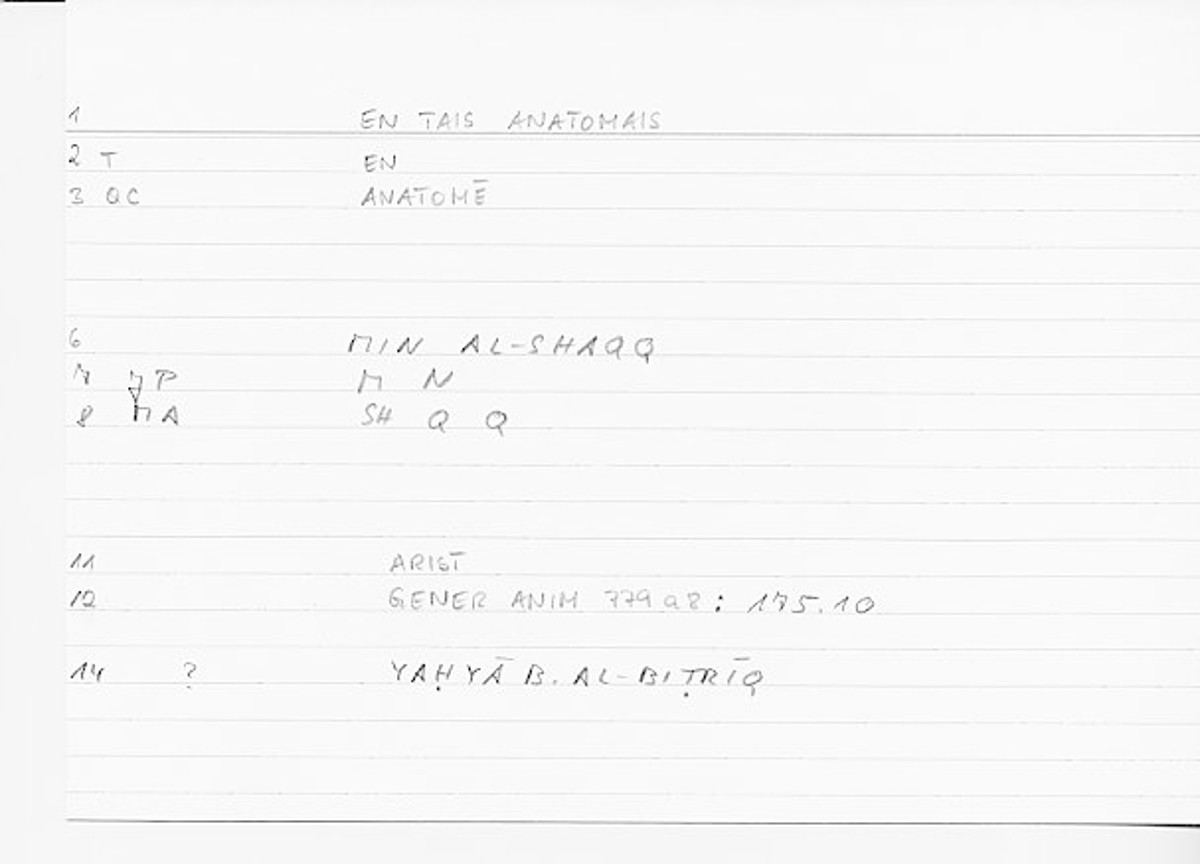 1 EN TAIS ANATOMAIS
2 T EN
3 QC ANATOMĒ
6 MIN AL-SHAQQ
7 P M N
8 MA SH Q Q
11 ARIST
12 GENER ANIM 779a8: 175.10
14 ? YAḤYĀ B. AL-BIṬRĪQ